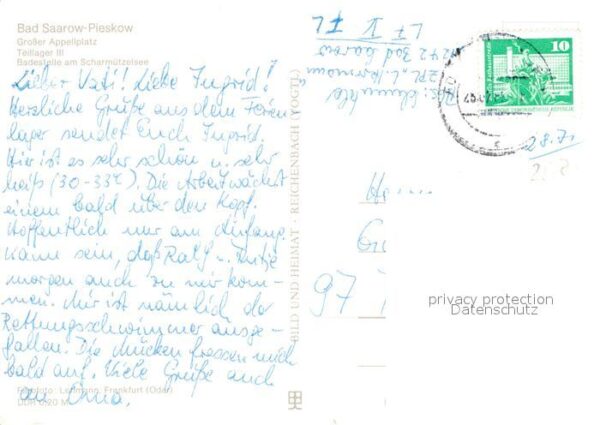 Bad Saarow-Pieskow
Großer Appellplatz
Teillager III
Badestelle am Scharmützelsee
Lieber Vati! Liebe Ingrid!
Herzliche Grüße aus dem Ferien
lager sendet Euch Ingrid.
Hier ist es sehr schön u. sehr
heiß (30-33°C). Die Arbeit wächst
einem bald über den Kopf.
Hoffentlich nur am Anfang.
Kann sein, daß Ralf u. Antje
morgen auch zu mir kom-
men. Mir ist nämlich der
Rettungsschwimmer ausge-
fallen. Die Mücken fressen mich
bald auf. Viele Grüße auch
an Oma.
Farbfoto: Frankfurt (Oder)
DDR 0,20 M
BILD UND HEIMAT · REICHENBACH (VOGTL)
1242 Bad Saarow
LF V
10
28.7.
97
privacy protection
Datenschutz